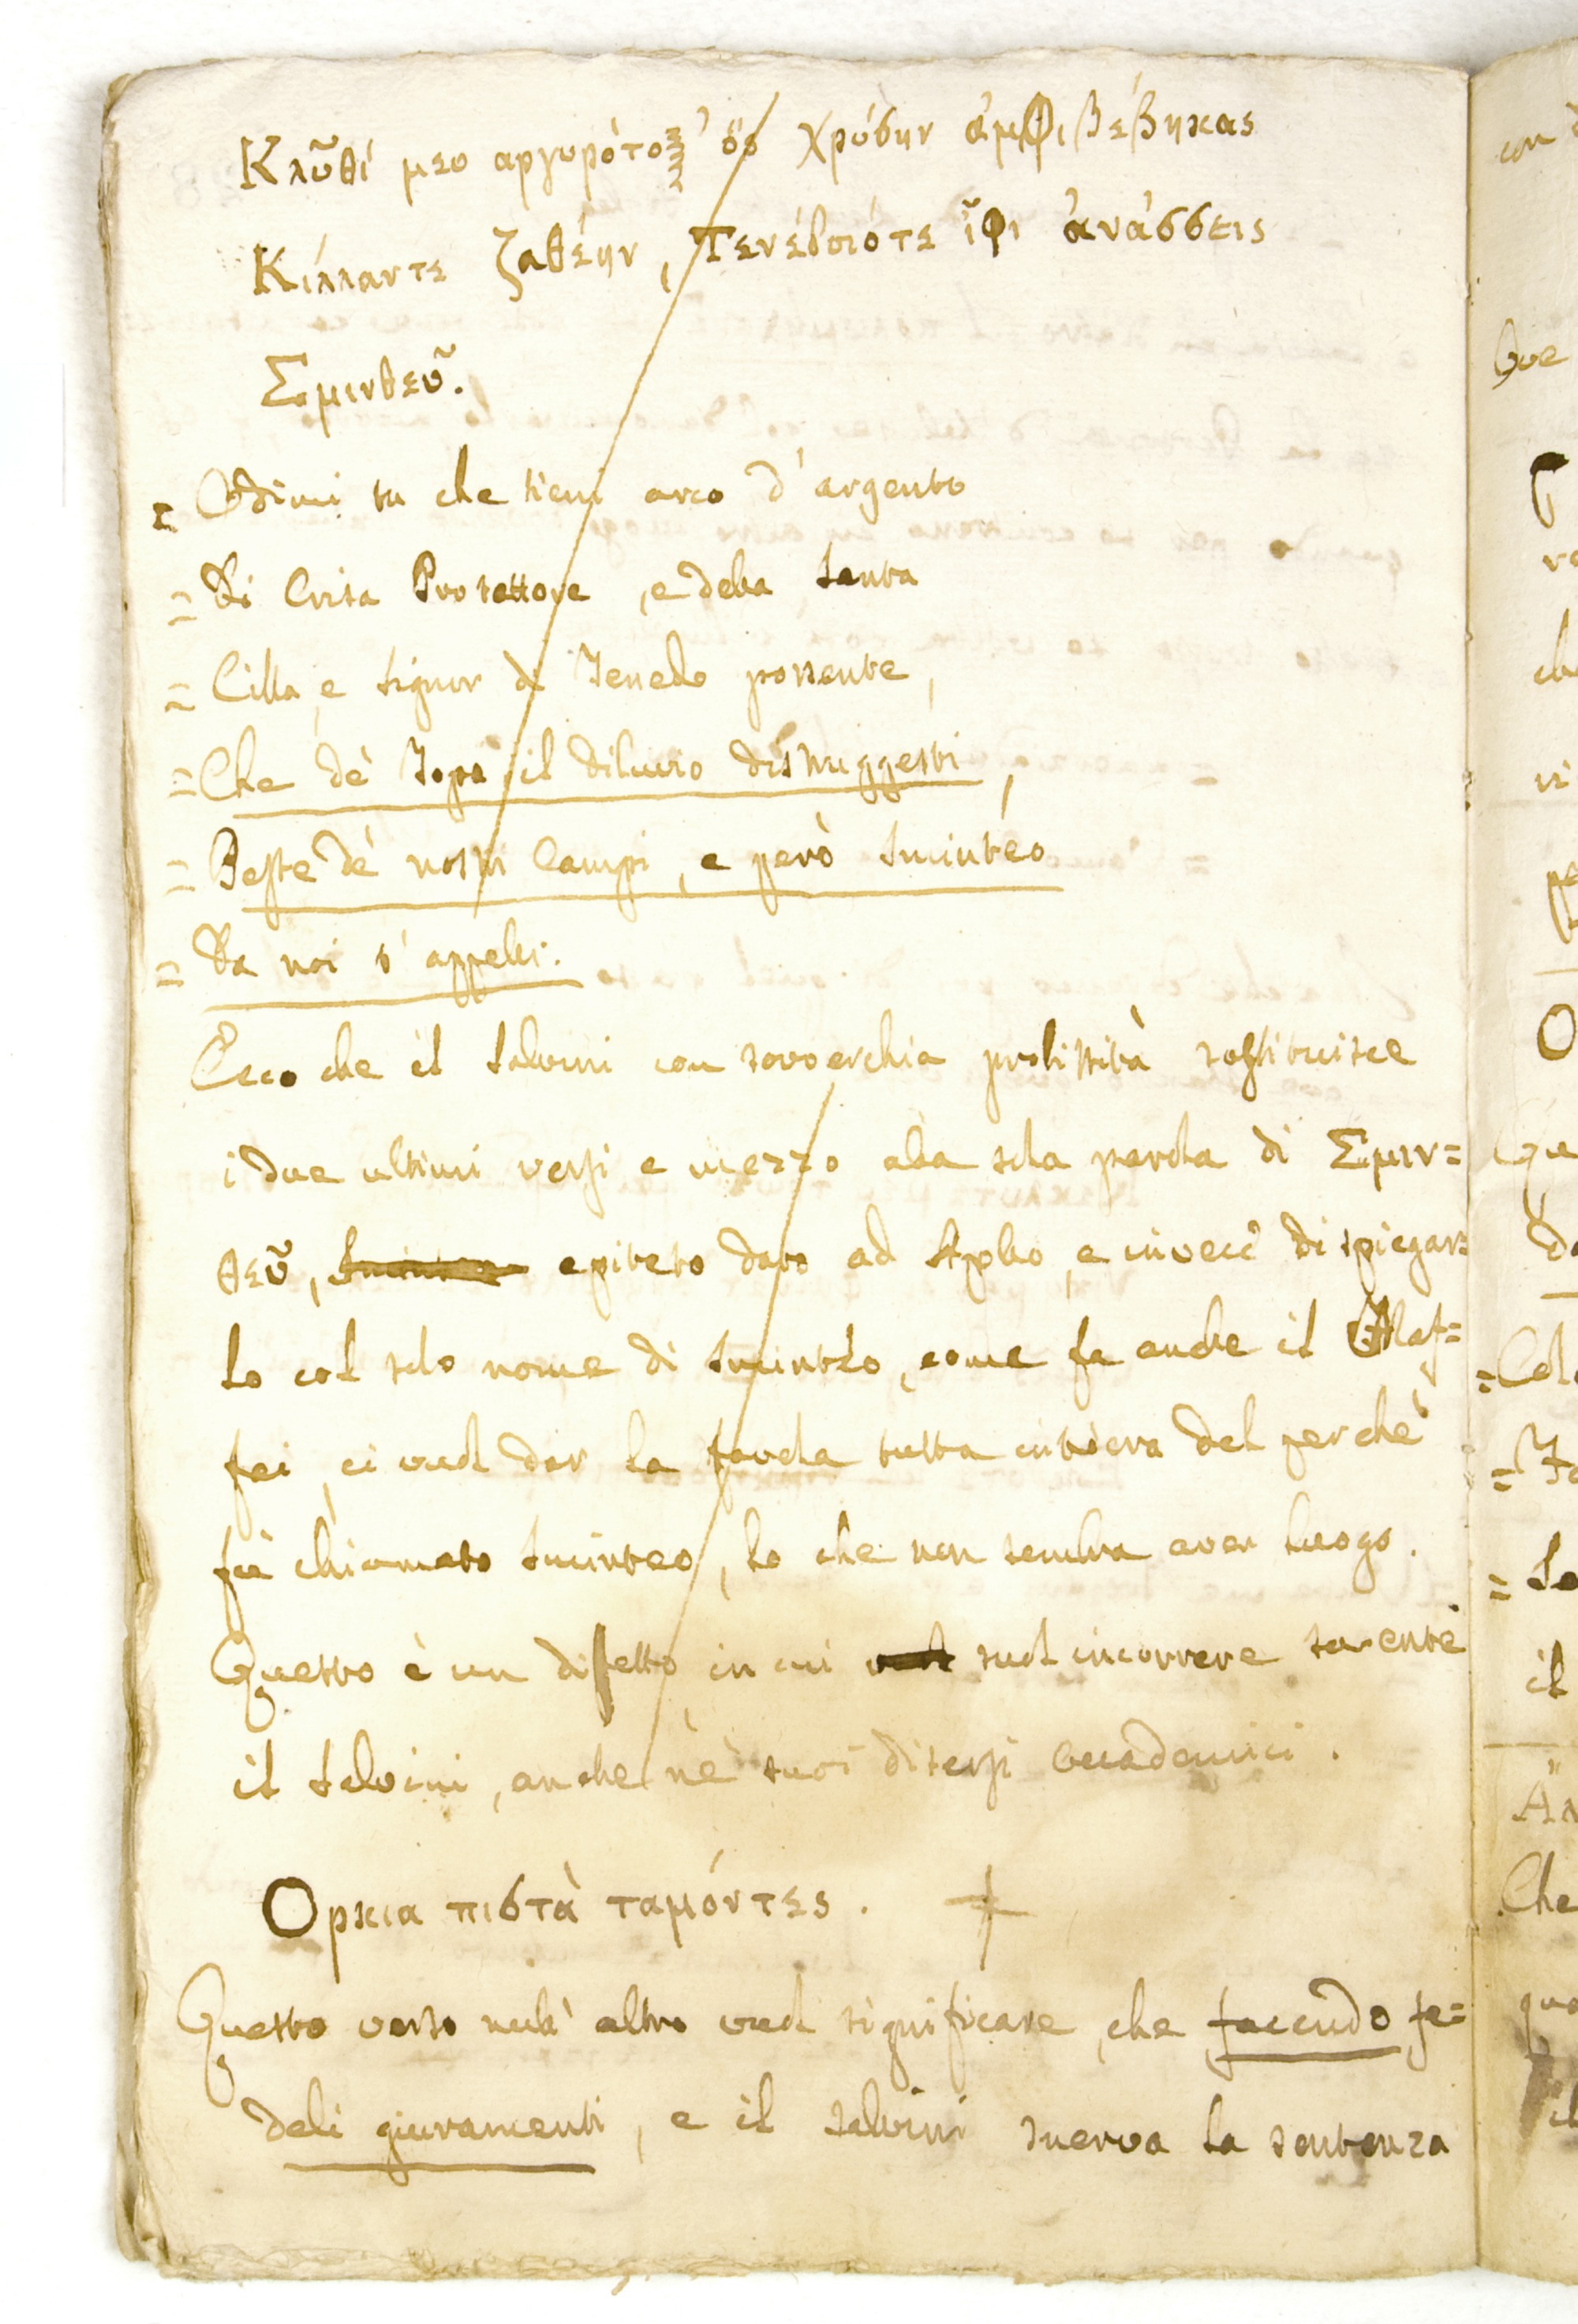 Κλῦθί μευ αργυρότοξ' ὃσ χρύσην ἀμφιβέβηκας
Κίλλαντε ζαθέην, Τενέδοιότε ἶφι ἀνάσσεις
Σμινθεῦ.
= Odimi tu che tieni arco d'argento
= Di Crisa Protettore, e della santa
= Cilla, e signor di Tenedo possente,
= Che de' Topi il diluvio distruggesti,
= Peste de' nostri Campi, e però Sminteo
= Da noi s'appelli:
Ecco che il Salvini con soverchia prolissità sostituisce
i due ultimi versi e mezzo alla sola parola di Σμιν=
θεῦ, epiteto dato ad Apollo, e invece di spiegar=
lo col solo nome di Sminteo, come fa anche il Maf=
fei, ci vuol dar la favola tutta intiera del perchè
fù chiamato Sminteo, lo che non sembra aver luogo.
Questo è un difetto, in cui suol incorrere sovente
il Salvini, anche ne' suoi discorsi Accademici.
Ορκια πιστὰ ταμόντες. +
Questo verso null'altro vuol significare, che facendo fe=
deli giuramenti, e il Salvini snerva la sentenza
con
Que
O
il
Che